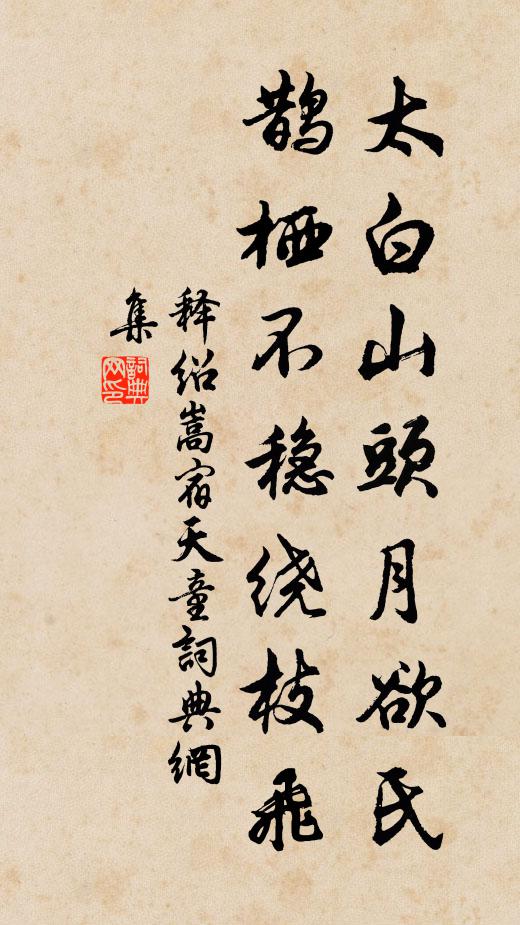 太白山頭月欲氏
鹊栖不稳绕枝飛
释绍嵩宿天童詞典網
集
詞典
网印